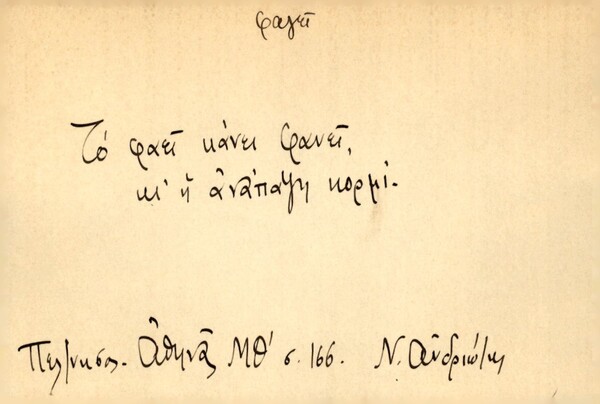 φαγεῖ
Τό φαεῖ κάνει φανεῖ,
κι' ἡ ἀνάπαψη κορμί.
Πελ/νησος. Ἀθηνᾶ ΜΘ' σ. 166. Ν. Ἀνδριώτης